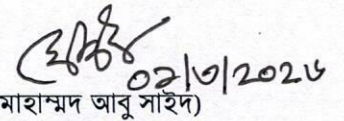 ০২/৩/২০২৬
মাহাম্মদ আবু সাইদ)